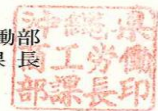 働部
課 長
沖縄県
商工労働
部課長印